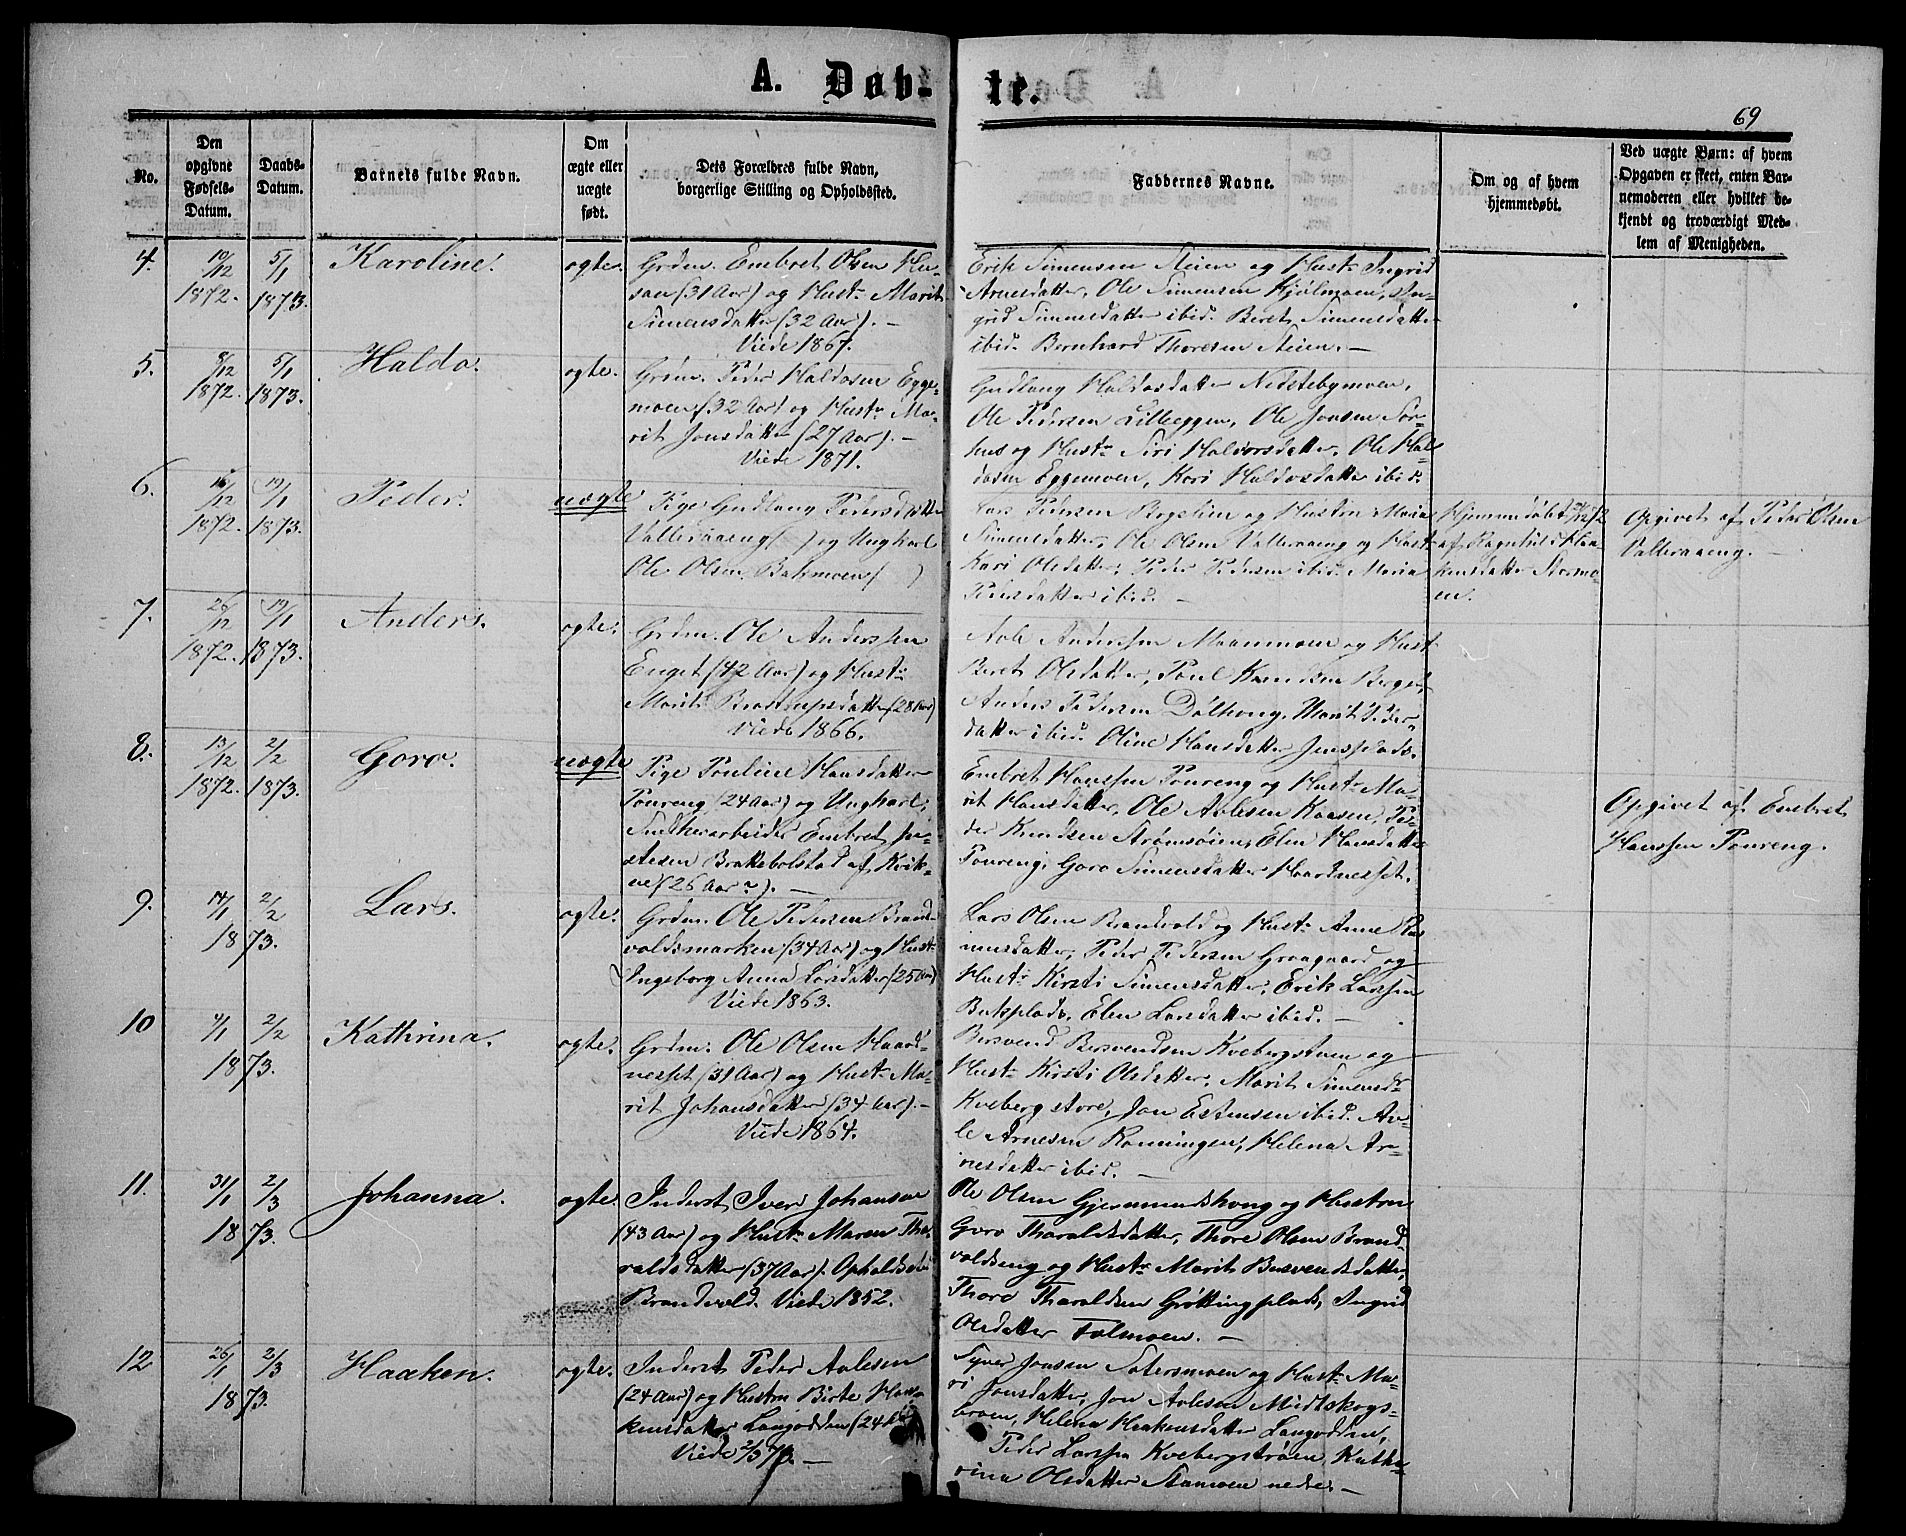 A. Døb-te.
69
No.
Den opgivne Fødsels-Datum.
Daabs-Datum.
Barnets fulde Navn.
Om ægte eller uægte født.
Dets Forældres fulde Navn, borgerlige Stilling og Opholdssted.
Faddernes Navne.
Om og af hvem hjemmedøbt.
Ved uægte Børn: af hvem Opgaven er skeet, enten Bar-nemoderen eller hvilket be-kjendt og troværdigt Med-lem af Menigheden.
4.
19/12 1872.
5/1 1873.
Karoline.
ægte.
Grdm. Embret Olsen Hu-
saen (31 Aar) og Hustr. Marit
Simensdatter (32 Aar). –
Viede 1867.
Erik Simensen Steien og Hustr. Ingrid
Arnesdatter, Ole Simensen Kjølmoen, In-
grid Simensdatter ibid. Beret Simensdatter
ibid. Bernhard Thoresen Steien. –
5.
8/12 1872.
5/1 1873.
Haldo.
ægte.
Grdm. Peder Haldosen Egge-
moen (32 Aar) og Hustr. Ma-
rit Jonsdatter (27 Aar). –
Viede 1871.
Gudlaug Haldosdatter Nedstebymoen,
Ole Pedersen Lilleeggen, Ole Jonsen Sør-
hus og Hustr. Siri Halvorsdatter, Ole Hal-
dosen Eggemoen, Kari Haldosdatter ibid.
6.
16/12 1872.
19/1 1873.
Peder.
uægte
Pige Gudlaug Pedersdatter
Valleraaeng ( ) og Ungkarl
Ole Olsen Bakmoen ( )
Lars Pedersen Bergseien og Hustru Maria
Simensdatter, Ole Olsen Valleraaeng og Hustr.
Kari Olsdatter, Peder Pedersen ibid. Maria
Pedersdatter ibid. –
Hjemmedøbt 72
af Ragnhild Haa-
kensdatter Stormo-
en.
Opgivet af Peder Olsen
Valleraaeng. –
7.
26/12 1872.
19/1 1873.
Anders.
ægte.
Grdm. Ole Anderssen
Enget (42 Aar) og Hustr.
Marit Brostrupsdatter (28 Aar)
Viede 1866.
Avle Anderssen Moanmoen og Hustr.
Beret Olsdatter, Poul Knudsen Berget,
Anders Pedersen Dølhaug, Marit Peders-
datter ibid. Oline Hansdatter Jensplads.
8.
13/12 1872.
2/2 1873.
Goro.
uægte
Pige Pouline Hansdatter
Poureng (24 Aar) og Ungkarl,
Snedkerarbeider Embret Jo-
stesen Brattebolstad af Kvik-
ne (26 Aar?). –
Embret Hanssen Poureng og Hustr. Ma-
rit Hansdatter, Ole Avlesen Kaasen, Pe-
der Knudsen Strømsøien, Elen Hansdatter
Poureng, Goro Simensdatter Haardnesset.
Opgivet af Embret
Hanssen Poureng.
9.
14/1 1873.
2/2
Lars.
ægte.
Grdm. Ole Pedersen Brand-
voldsmarken (34 Aar) og Hustr.
Ingeborg Anna Larsdatter (25 Aar)
Viede 1863.
Lars Olsen Brandvold og Hustr. Anne Ras-
musdatter, Peder Pedersen Graagaard og
Hustr. Kirsti Simensdatter, Erik Larssen
Bukplads, Elen Larsdatter ibid. –
10
4/1 1873.
2/2
Kathrina.
ægte.
Grdm. Ole Olsen Haard-
nesset (31 Aar) og Hustr. Ma-
rit Johansdatter (34 Aar). –
Viede 1864.
Bersvend Bersvendsen Kvebergstuen og
Hustr. Kirsti Olsdatter, Marit Simensdr.
Kvebergstore, Jon Estensen ibid. Av-
le Arnesen Konningen, Helena Ar-
nesdatter ibid. –
11.
31/1 1873.
2/3
Johanna.
ægte.
Inderst Iver Johansen
(43 Aar) og Hustr. Maren Tha-
raldsdatter (37 Aar). Opholdssted
Brandvold. Viede 1852.
Ole Olsen Gjermundshaug og Hustru
Goro Tharaldsdatter, Thore Olsen Brand-
voldseng og Hustr. Marit Bersvendsdatter,
Thore Tharaldsen Grøttingplads, Ingrid
Olsdatter Folmoen. –
12
26/1 1873.
2/3
Haaken.
ægte.
Inderst Peder Avlesen
(24 Aar) og Hustru Birte Haa-
kensdatter Langodden (24 Aar)
Viede 2/3 73. –
Syver Jonsen Sætersmoen og Hustr. Ma-
ri Jonsdatter, Jon Avlesen Midtskogs-
broen, Helena Haakensdatter Langodden,
Peder Larssen Kvebergstrøen, Kathe-
rina Olsdatter Stamoen nedre. –